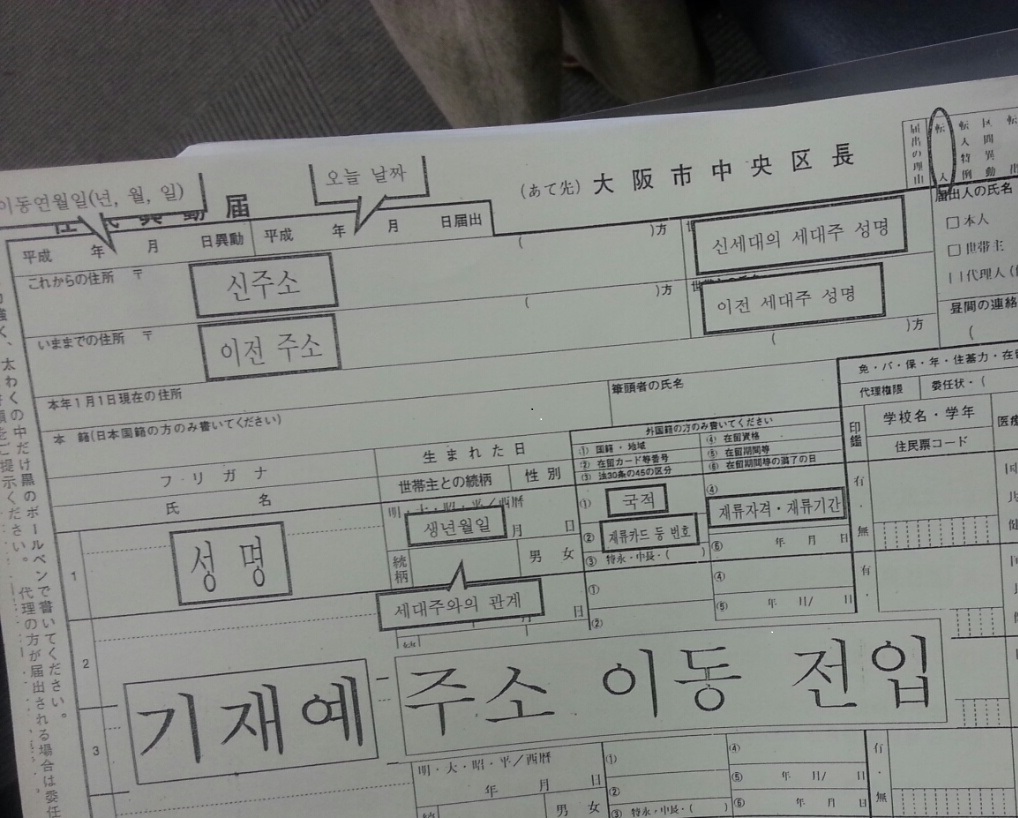 이동연월일(년, 월, 일)
오늘 날짜
(あて先) 大阪市中央区長
届出の理由
転入
届出人の氏名
平成 年 月 日異動
平成 年 月 日届出
本人
世帯主
代理人
これからの住所 〒
신주소
( )方
신세대의 세대주 성명
いままでの住所 〒
이전 주소
( )方
이전 세대주 성명
昼間の連絡
本年1月1日現在の住所
( )方
筆頭者の氏名
免・パ・保・年・住基力・在
代理権限 委任状・(
本 籍(日本国籍の方のみ書いてください)
外国籍の方のみ書いてください
① 国籍・地域
② 在留カード等番号
③ 法30条の45の区分
④ 在留資格
⑤ 在留期間等
⑥ 在留期間等の満了の日
印鑑
学校名・学年
住民票コード
フリガナ
氏 名
生まれた日
世帯主との続柄 性別
1
성명
생년월일
月 日
続柄
男 女
세대주와의 관계
① 국적
② 재류카드 등 번호
③ 特永・中長・( )
④ 재류자격・재류기간
⑥ 年 月 日
有・無
2
①
②
④
⑤ 年 月/ 日
有
기재예
주소 이동 전입
3
明・大・昭・平/西暦
年 月 日
男 女
①
②
③ 特永・中長・( )
④
⑤ 年 月/ 日
⑥ 年 月 日
有・無